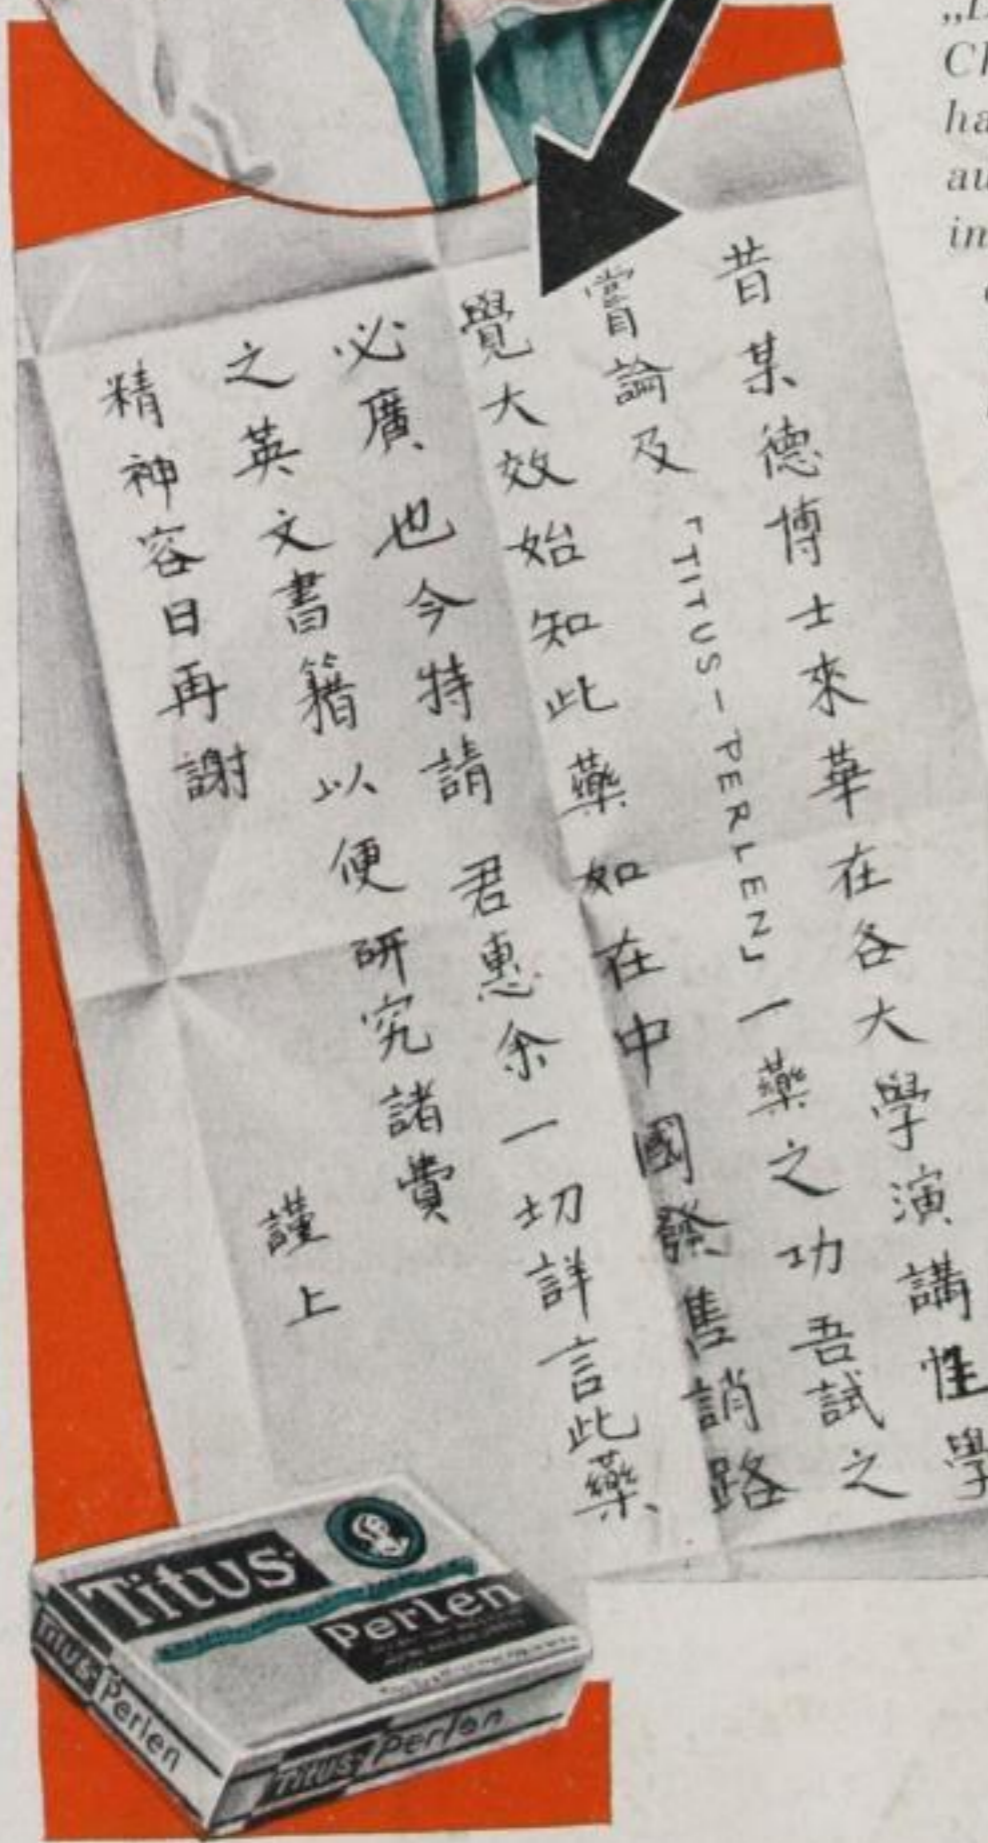 昔某德博士來華在各大學演講性學
嘗論及「TITUS-PERLEN」一藥之功吾試之
覺大效始知此藥如在中國發售誚路
必廣也今特請 君惠余一切詳言此藥
之英文書籍以便研究諸費
精神容日再謝
謹上
Titus-
Perlen
Titus-Perlen
Titus-Perlen